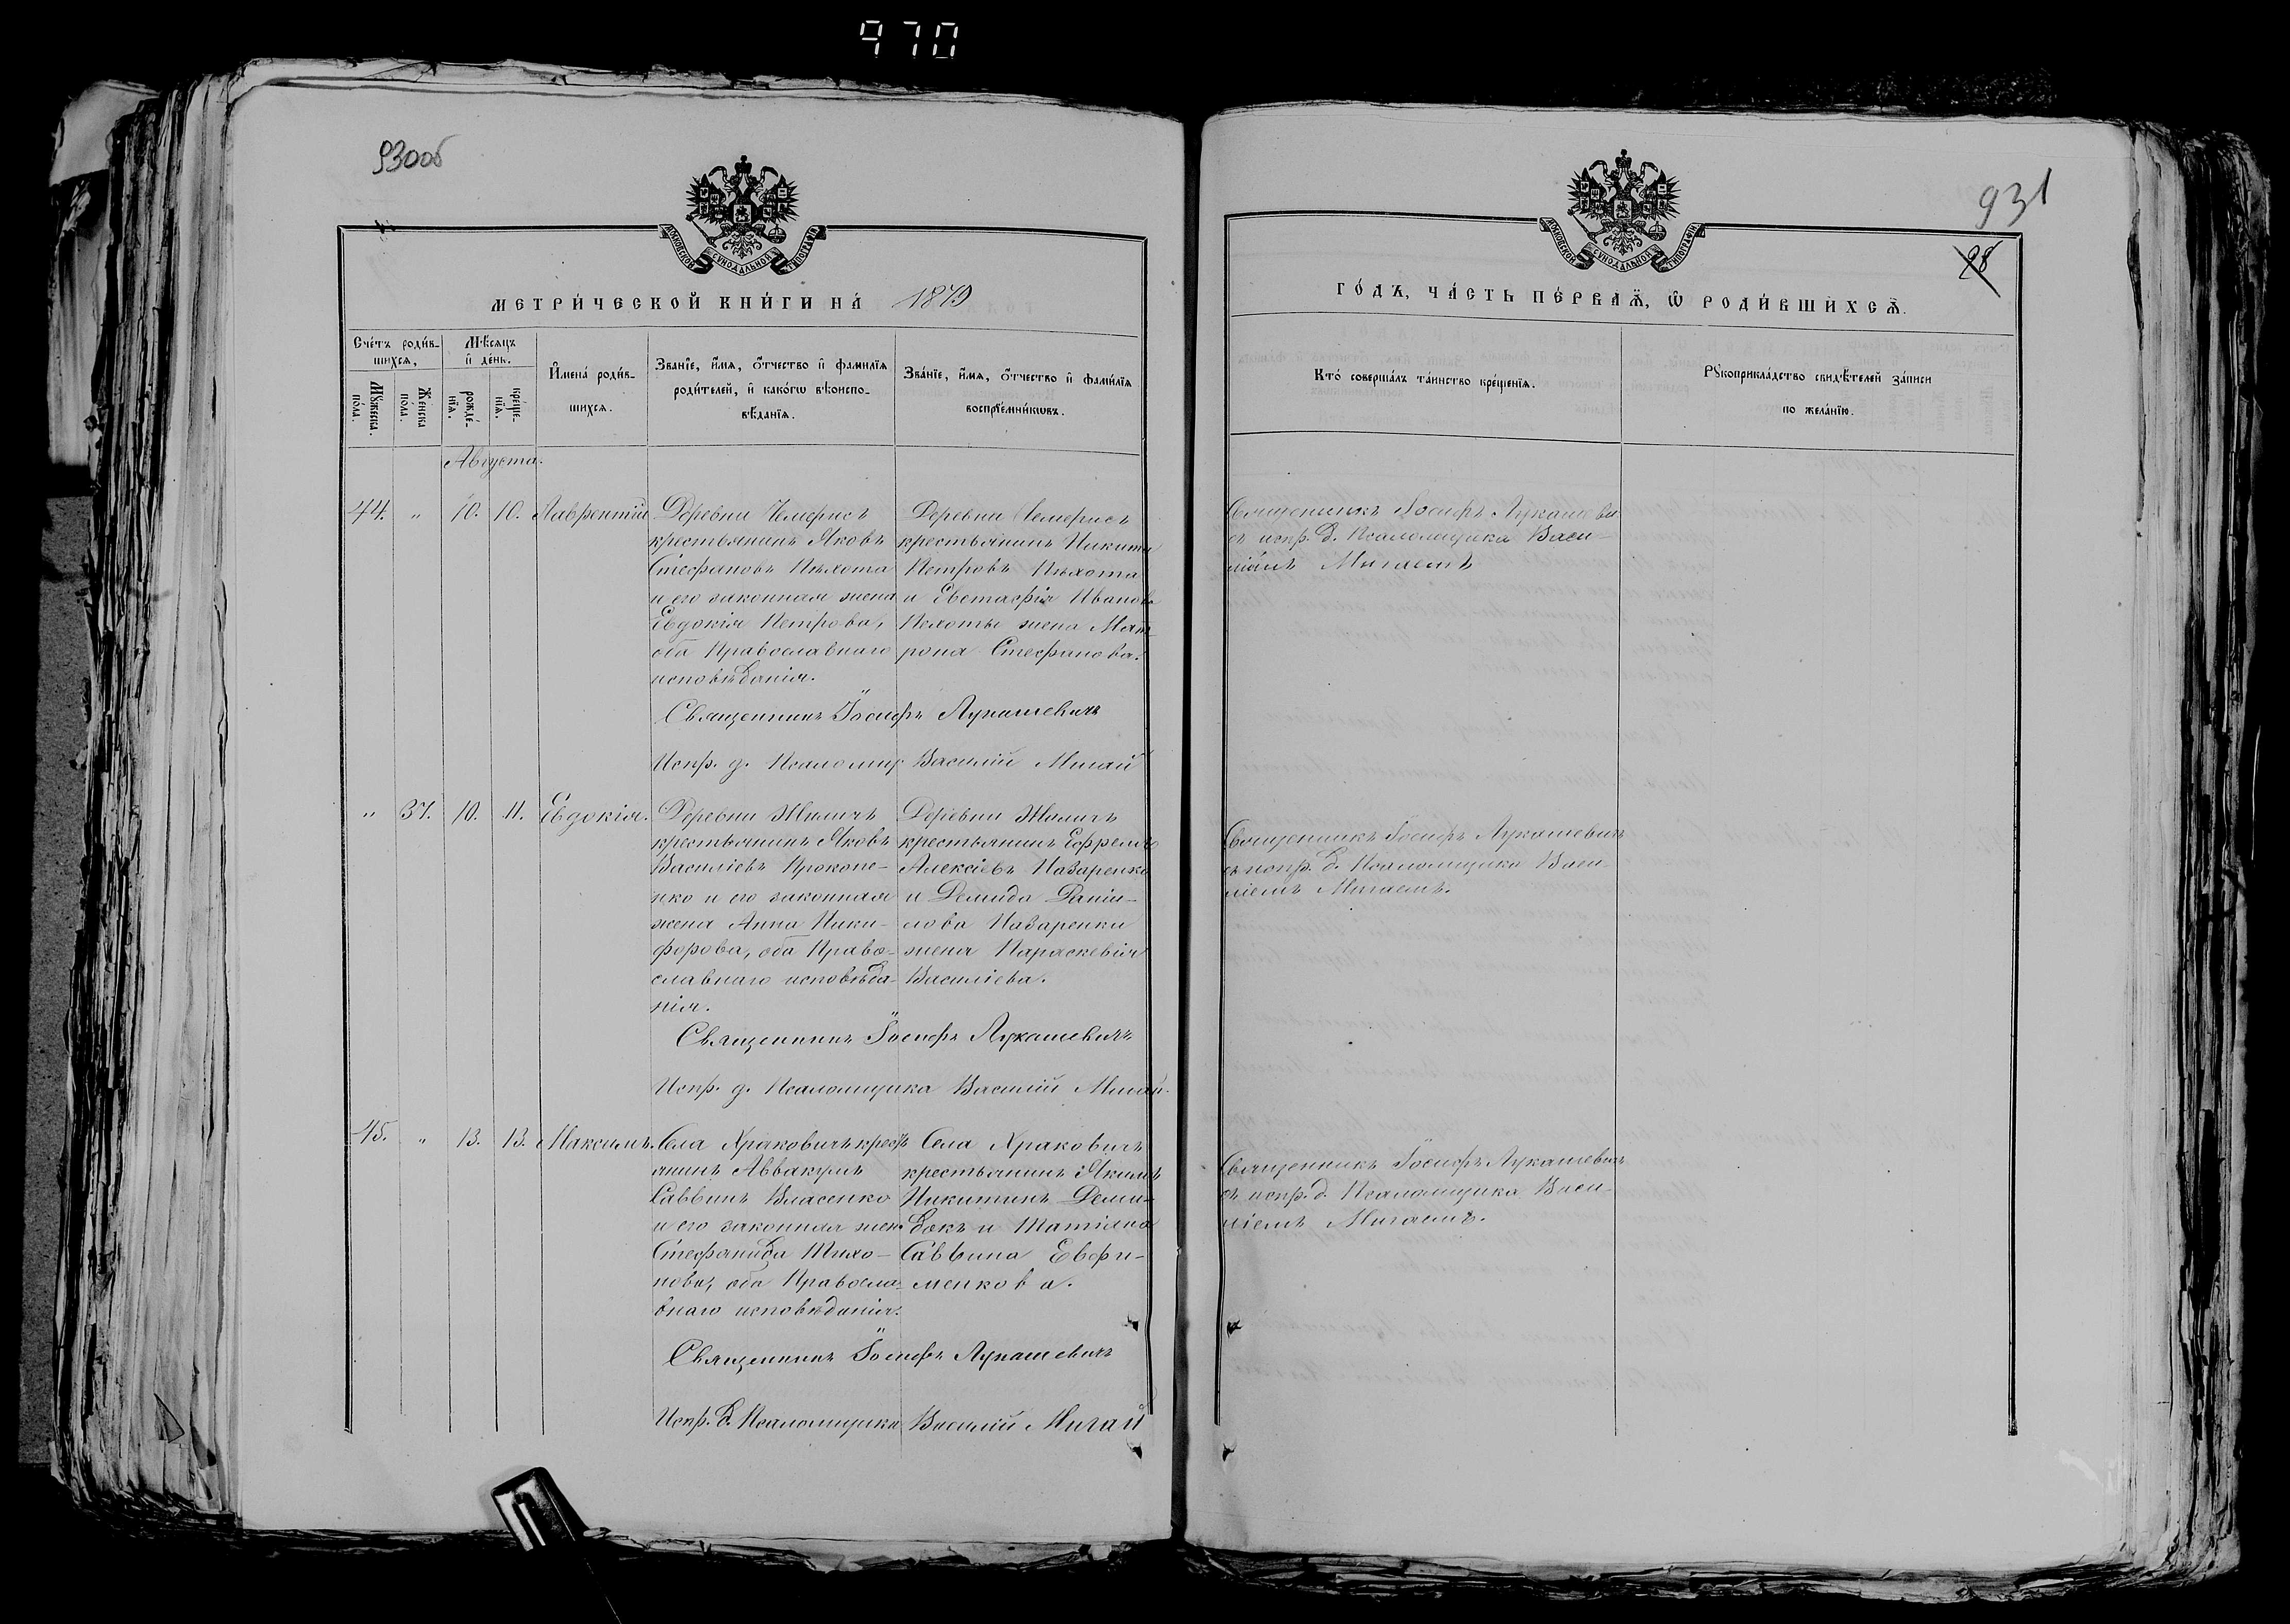 970
930об
МОСКОВСКОЙ СѴНОДАЛЬНОЙ ТИПОГРАФІИ
МЕТРИ́ЧЕСКОЙ КНИ́ГИ НА́ 1879
Сче́тъ роди́в-
шихсѧ,
Мѣ́сѧцъ
и҆ де́нь.
Мꙋ́жеска
по́ла.
Же́нска
по́ла.
рожде́-
нїѧ.
креще́-
нїѧ.
И҆мена̀ роди́в-
шихсѧ.
Зва́нїе, и҆́мѧ, ѻ҆́тчество и҆ фамилїѧ
роди́телей, и҆ како́гѡ вѣ̀роиспо-
вѣ́данїѧ.
Зва́нїе, и҆́мѧ, ѻ҆́тчество и҆ фами́лїѧ
воспрїе́мникѡвъ.
Августа.
44. " 10. 10. Лаврентій
Деревни Чемерисъ
крестьянинъ Яковъ
Стефановъ Пѣхота
и его законная жена
Евдокія Петрова,
оба Православнаго
исповѣданія.
Деревни Чемерисъ
крестьянинъ Никита
Петровъ Пѣхота
и Евстафія Иванова
Пехоты жена Мат-
рона Стефанова.
Священникъ Іосифъ Лукашевичъ
Испр. д. Псаломщ. Василій Мигай
" 37. 10. 11. Евдокія.
Деревни Жиличъ
крестьянинъ Яковъ
Василіевъ Прокопе-
нко и его законная
жена Анна Ники-
форова, оба Право-
славнаго исповѣда-
нія.
Деревни Жиличъ
крестьянинъ Ефремъ
Алексіевъ Назаренко
и Демида Даніи-
лова Назаренки
жена Параскевія
Василіева.
Священникъ Іосифъ Лукашевичъ
Испр. д. Псаломщика Василій Мигай.
45. " 13. 13. Максимъ.
Села Храковичъ крестъ
янинъ Аввакумъ
Саввинъ Власенко
и его законная жен.
Стефанида Тихо-
нова, оба Правосла-
внаго исповѣданія.
Села Храковичъ
крестьянинъ Якимъ
Никитинъ Деми-
докъ и Татіана
Саввина Евфи-
менкова.
Священникъ Іосифъ Лукашевичъ
Испр. д. Псаломщика Василій Мигай
931
28
МОСКОВСКОЙ СѴНОДАЛЬНОЙ ТИПОГРАФІИ
ГО́ДЪ, ЧА́СТЬ ПЕ́РВАѦ, Ѽ РОДИ́ВШИХСѦ.
Кто̀ соверша́лъ та́инство креще́нїѧ.
Рꙋкоприкла́дство свидѣ́телей за́писи
по жела́нїю.
Священникъ Іосифъ Лукашеви
съ испр. д. Псаломщика Васи-
ліемъ Мигаемъ
Священникъ Іосифъ Лукашевичъ
съ испр. д. Псаломщика Васи-
ліемъ Мигаемъ.
Священникъ Іосифъ Лукашевичъ
съ испр. д. Псаломщика Васи-
ліемъ Мигаемъ.